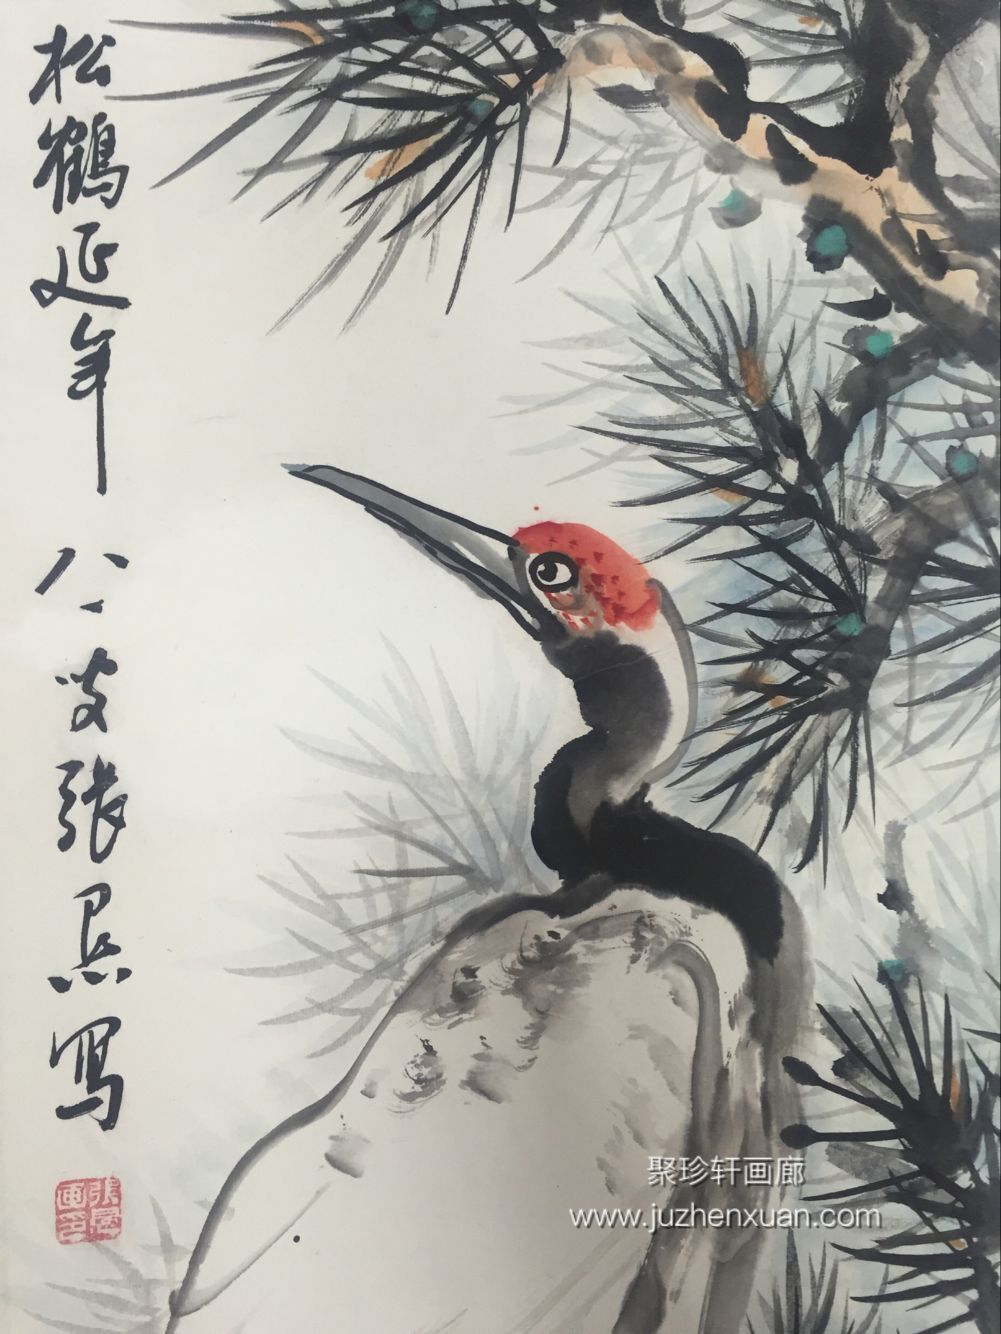 松鶴延年 八二叟張寫
聚珍轩画廊
www.juzhenxuan.com